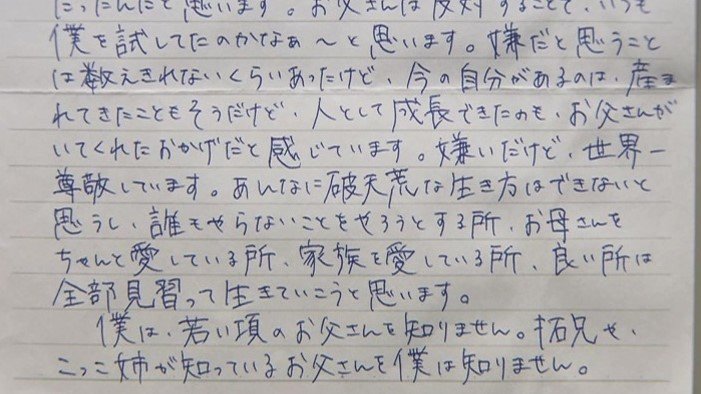 だったんだと思います。お父さんは反対することで、いつも
僕を試してたのかなぁ〜と思います。嫌だと思うこと
は数えきれないくらいあったけど、今の自分があるのは、産ま
れてきたこともそうだけど、人として成長できたのも、お父さんが
いてくれたおかげだと感じています。嫌いだけど、世界一
尊敬しています。あんなに破天荒な生き方はできないと
思うし、誰もやらないことをやろうとする所、お母さんを
ちゃんと愛している所、家族を愛している所、良い所は
全部見習って生きていこうと思います。
僕は、若い項のお父さんを知りません。拓兄や、
こっこ姉が知っているお父さんを僕は知りません。